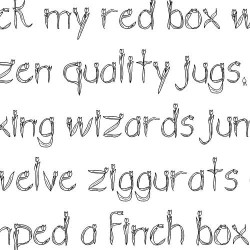 ck my red box w
zen quality jugs.
xing wizards jum
velve ziggurats
ped a finch box